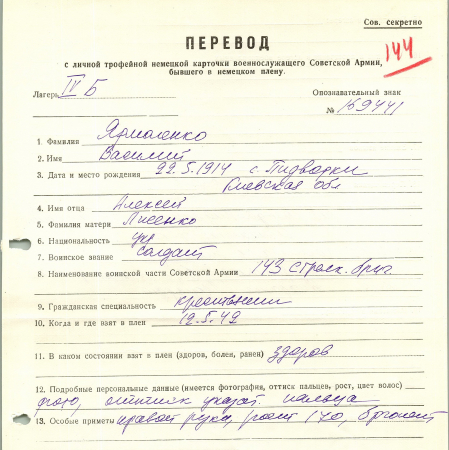 Сов. секретно
ПЕРЕВОД
144
с личной трофейной немецкой карточки военнослужащего Советской Армии,
бывшего в немецком плену.
Лагерь IV Б
Опознавательный знак
№ 169441
1. Фамилия Ярмоленко
2. Имя Василий
3. Дата и место рождения 22.5.1914 с. Пидворки
Киевская обл
4. Имя отца Алексей
5. Фамилия матери Лисенко
6. Национальность укр
7. Воинское звание солдат
8. Наименование воинской части Советской Армии 143 стрелк. бриг.
9. Гражданская специальность крестьянин
10. Когда и где взят в плен 12.5.42
11. В каком состоянии взят в плен (здоров, болен, ранен) здоров
12. Подробные персональные данные (имеется фотография, оттиск пальцев, рост, цвет волос)
фото, оттиск указат. пальца
13. Особые приметы правой руки, рост 170, брюнет